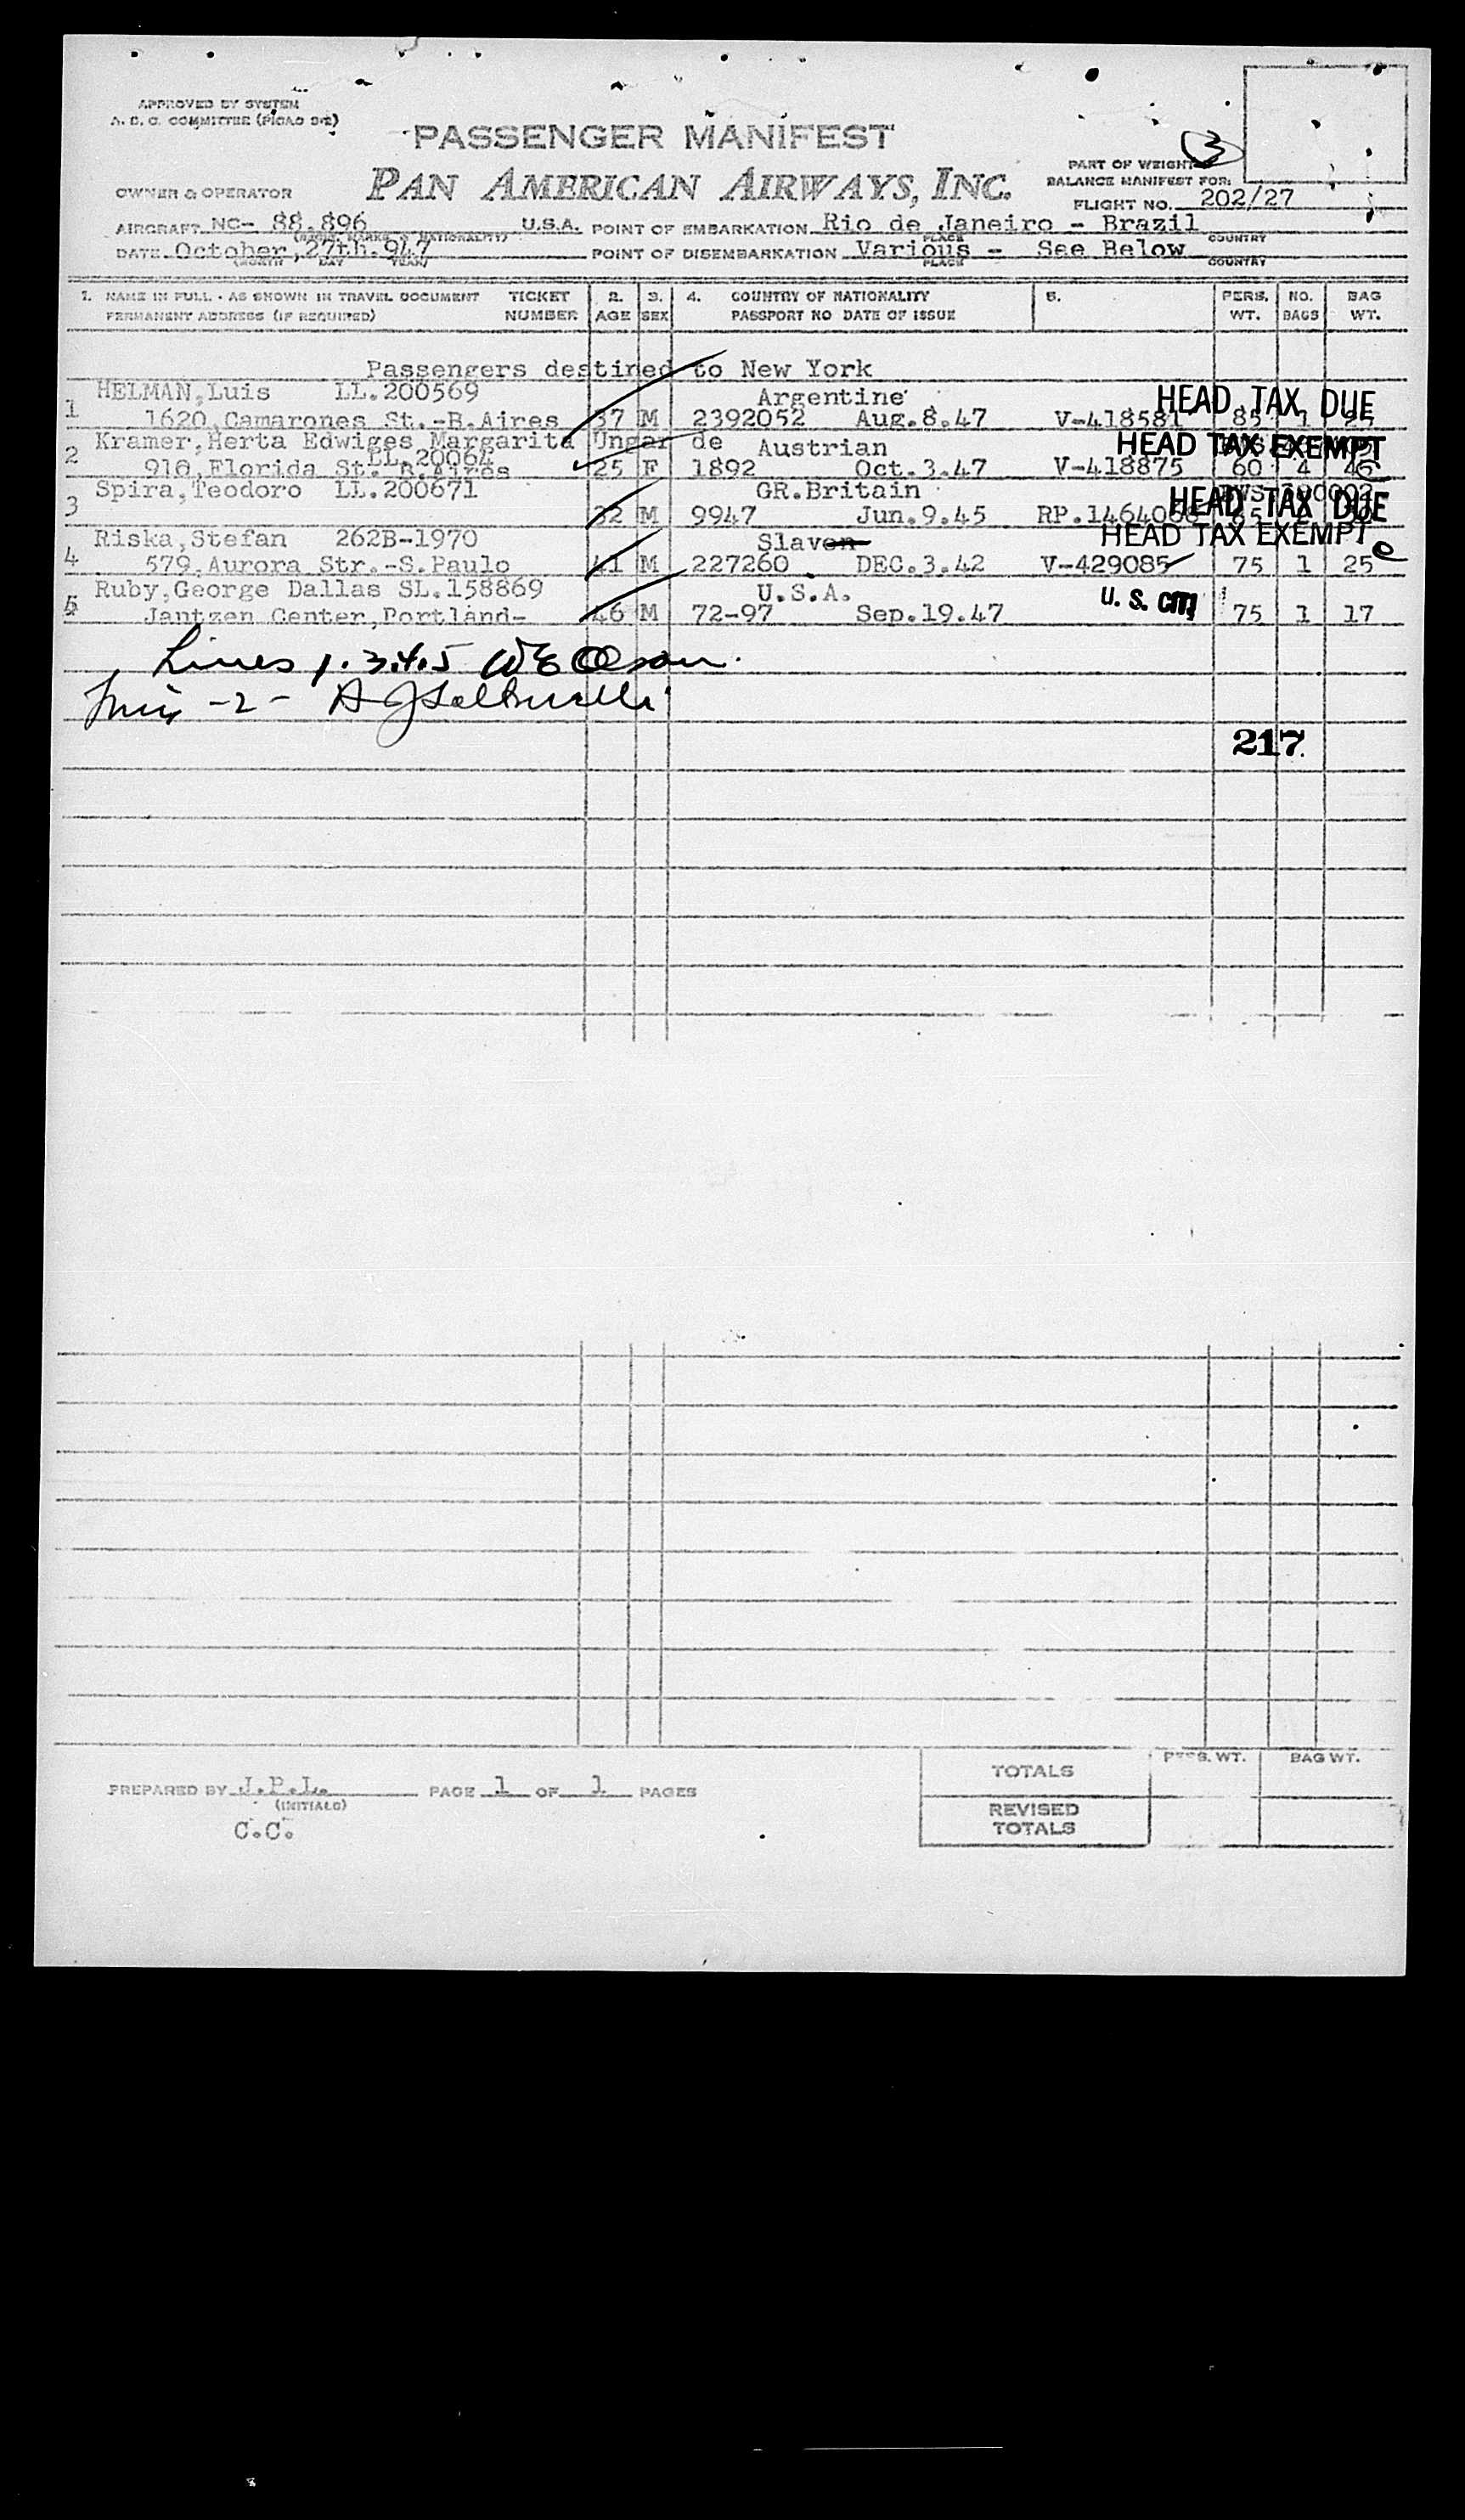 APPROVED BY SYSTEM
A. B. C. COMMITTEE (PICAO
PASSENGER MANIFEST
3
PAN AMERICAN AIRWAYS, INC.
PART OF WEIGHT
BALANCE MANIFEST FOR:
OWNER & OPERATOR
FLIGHT NO. 202/27
AIRCRAFT NC- 88.896 U.S.A. POINT OF EMBARKATION Rio de Janeiro - Brazil
(REGIS. MARKS & NATIONALITY) PLACE COUNTRY
DATE October,27th.947 POINT OF DISEMBARKATION Various - See Below
(MONTH DAY YEAR) PLACE COUNTRY
1. NAME IN FULL - AS SHOWN IN TRAVEL DOCUMENT TICKET 2. 3. 4. COUNTRY OF NATIONALITY 5. PERS. NO. BAG
PERMANENT ADDRESS (IF REQUIRED) NUMBER AGE SEX PASSPORT NO DATE OF ISSUE WT. BAGS WT.
Passengers destined to New York
HELMAN,Luis LL.200569 Argentine HEAD TAX DUE
1 1620,Camarones St.-B.Aires 37 M 2392052 Aug.8.47 V-418581 85 1
Kramer,Herta Edwiges Margarita Ungar de Austrian HEAD TAX EXEMPT
2 LL.20064
910,Florida St. B.Aires 25 F 1892 Oct.3.47 V-418875 60 4 46
Spira,Teodoro LL.200671 GR.Britain HEAD TAX DUE
3 32 M 9947 Jun.9.45
Riska,Stefan 262B-1970 Slaven HEAD TAX EXEMPT
4 579,Aurora Str.-S.Paulo 41 M 227260 DEC.3.42 V-429085 75 1 25
Ruby,George Dallas SL.158869 U.S.A. U. S. CIT
5 Jantzen Center,Portland- 46 M 72-97 Sep.19.47 75 1 17
Lines 1.3.4.5 WE Olson.
-2-
217
PREPARED BY J.P.L. PAGE 1 OF 1 PAGES
(INITIALS)
C.C.
TOTALS PERS. WT. BAG WT.
REVISED
TOTALS